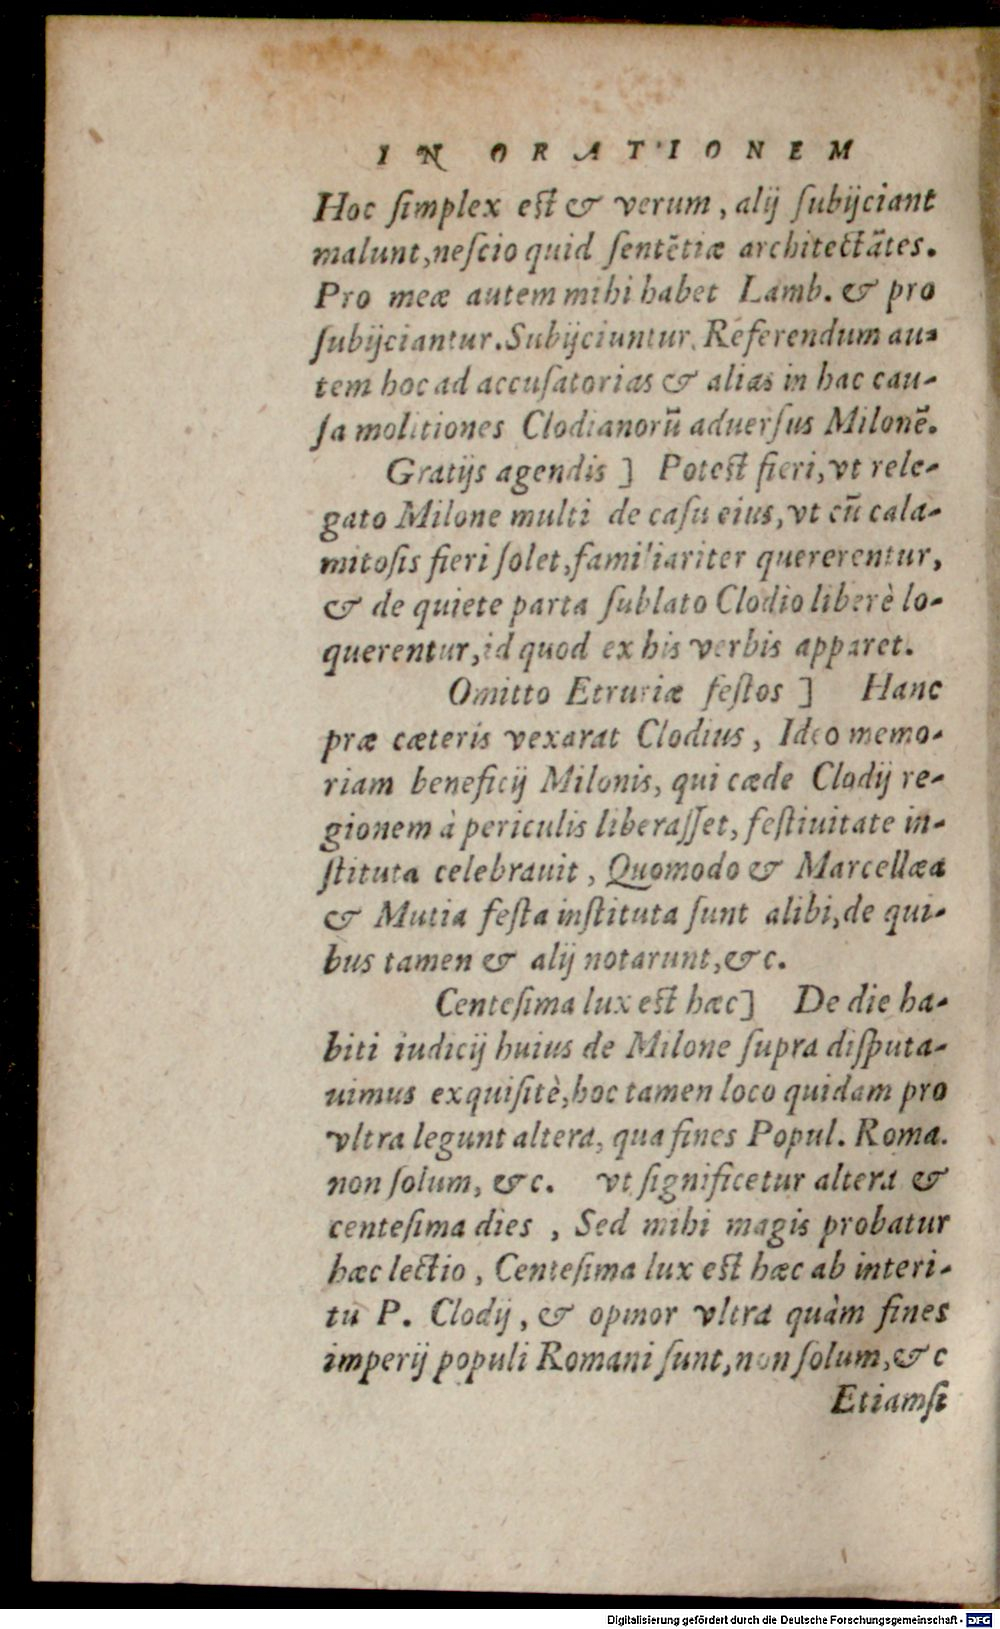 IN ORATIONEM
Hoc ſimplex eſt & verum, alij ſubijciant
malunt, neſcio quid ſentẽtiæ architectãtes.
Pro meæ autem mihi habet Lamb. & pro
ſubijciantur. Subijciuntur. Referendum au-
tem hoc ad accuſatorias & alias in hac cau-
ſa molitiones Clodianorũ aduerſus Milonẽ.
Gratijs agendis ] Poteſt fieri, vt rele-
gato Milone multi de caſu eius, vt cũ cala-
mitoſis fieri ſolet, familiariter quererentur,
& de quiete parta ſublato Clodio liberè lo-
querentur, id quod ex his verbis apparet.
Omitto Etruriæ feſtos ] Hanc
præ cæteris vexarat Clodius, Ideo memo-
riam beneficij Milonis, qui cæde Clodij re-
gionem à periculis liberaſſet, feſtiuitate in-
ſtituta celebrauit, Quomodo & Marcellæa
& Mutia feſta inſtituta ſunt alibi, de qui-
bus tamen & alij notarunt, &c.
Centeſima lux eſt hæc] De die ha-
biti iudicij huius de Milone ſupra diſputa-
uimus exquiſitè, hoc tamen loco quidam pro
vltra legunt altera, qua fines Popul. Roma.
non ſolum, &c. vt ſignificetur altera &
centeſima dies, Sed mihi magis probatur
hæc lectio, Centeſima lux eſt hæc ab interi-
tu P. Clodij, & opinor vltra quàm fines
imperij populi Romani ſunt, non ſolum, &c
Etiamſi
Digitalisierung gefördert durch die Deutsche Forschungsgemeinschaft - DFG